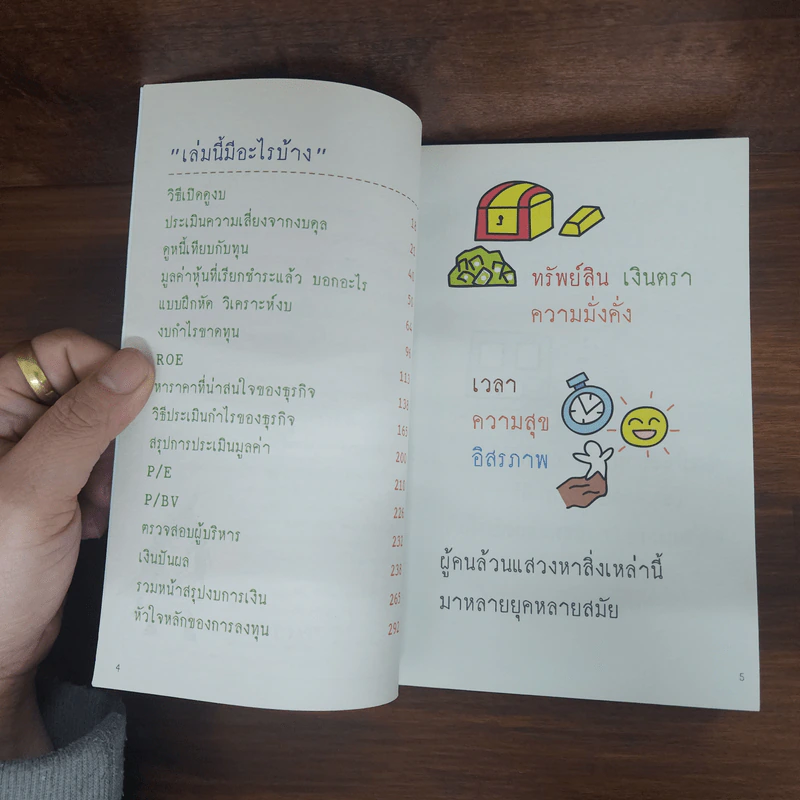 "เล่มนี้มีอะไรบ้าง"
วิธีเปิดดูงบ
ประเมินความเสี่ยงจากงบดุล
ดูหนี้เทียบกับทุน
มูลค่าหุ้นที่เรียกชำระแล้ว บอกอะไร
แบบฝึกหัด วิเคราะห์งบ 50
งบกำไรขาดทุน 64
ROE 96
หาราคาที่น่าสนใจของธุรกิจ 113
วิธีประเมินกำไรของธุรกิจ 138
สรุปการประเมินมูลค่า 165
P/E 200
P/BV 218
ตรวจสอบผู้บริหาร 226
เงินปันผล 232
รวมหน้าสรุปงบการเงิน 238
หัวใจหลักของการลงทุน 265
292
4
ทรัพย์สิน เงินตรา
ความมั่งคั่ง
เวลา
ความสุข
อิสรภาพ
ผู้คนล้วนแสวงหาสิ่งเหล่านี้
มาหลายยุคหลายสมัย
5